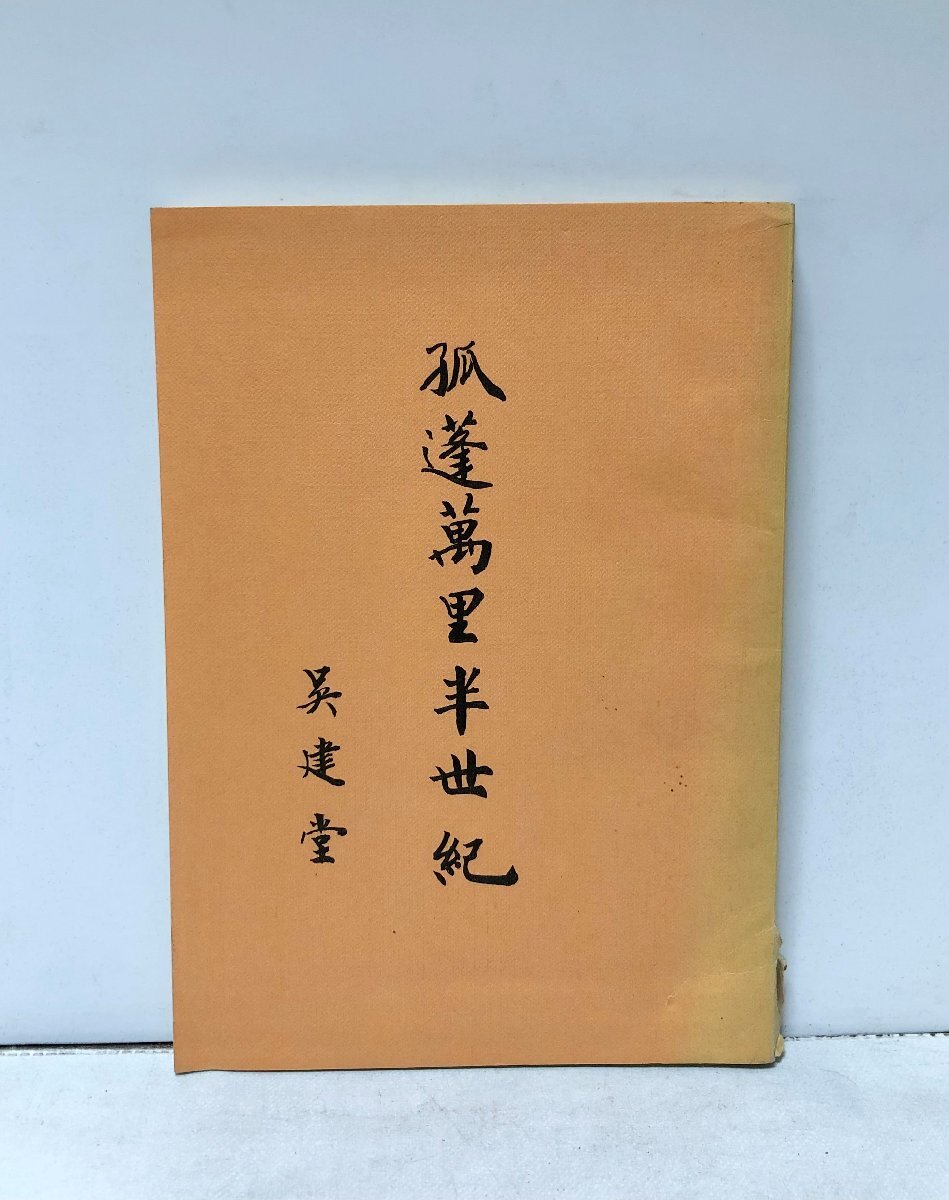 孤蓬萬里半世紀
吴建堂